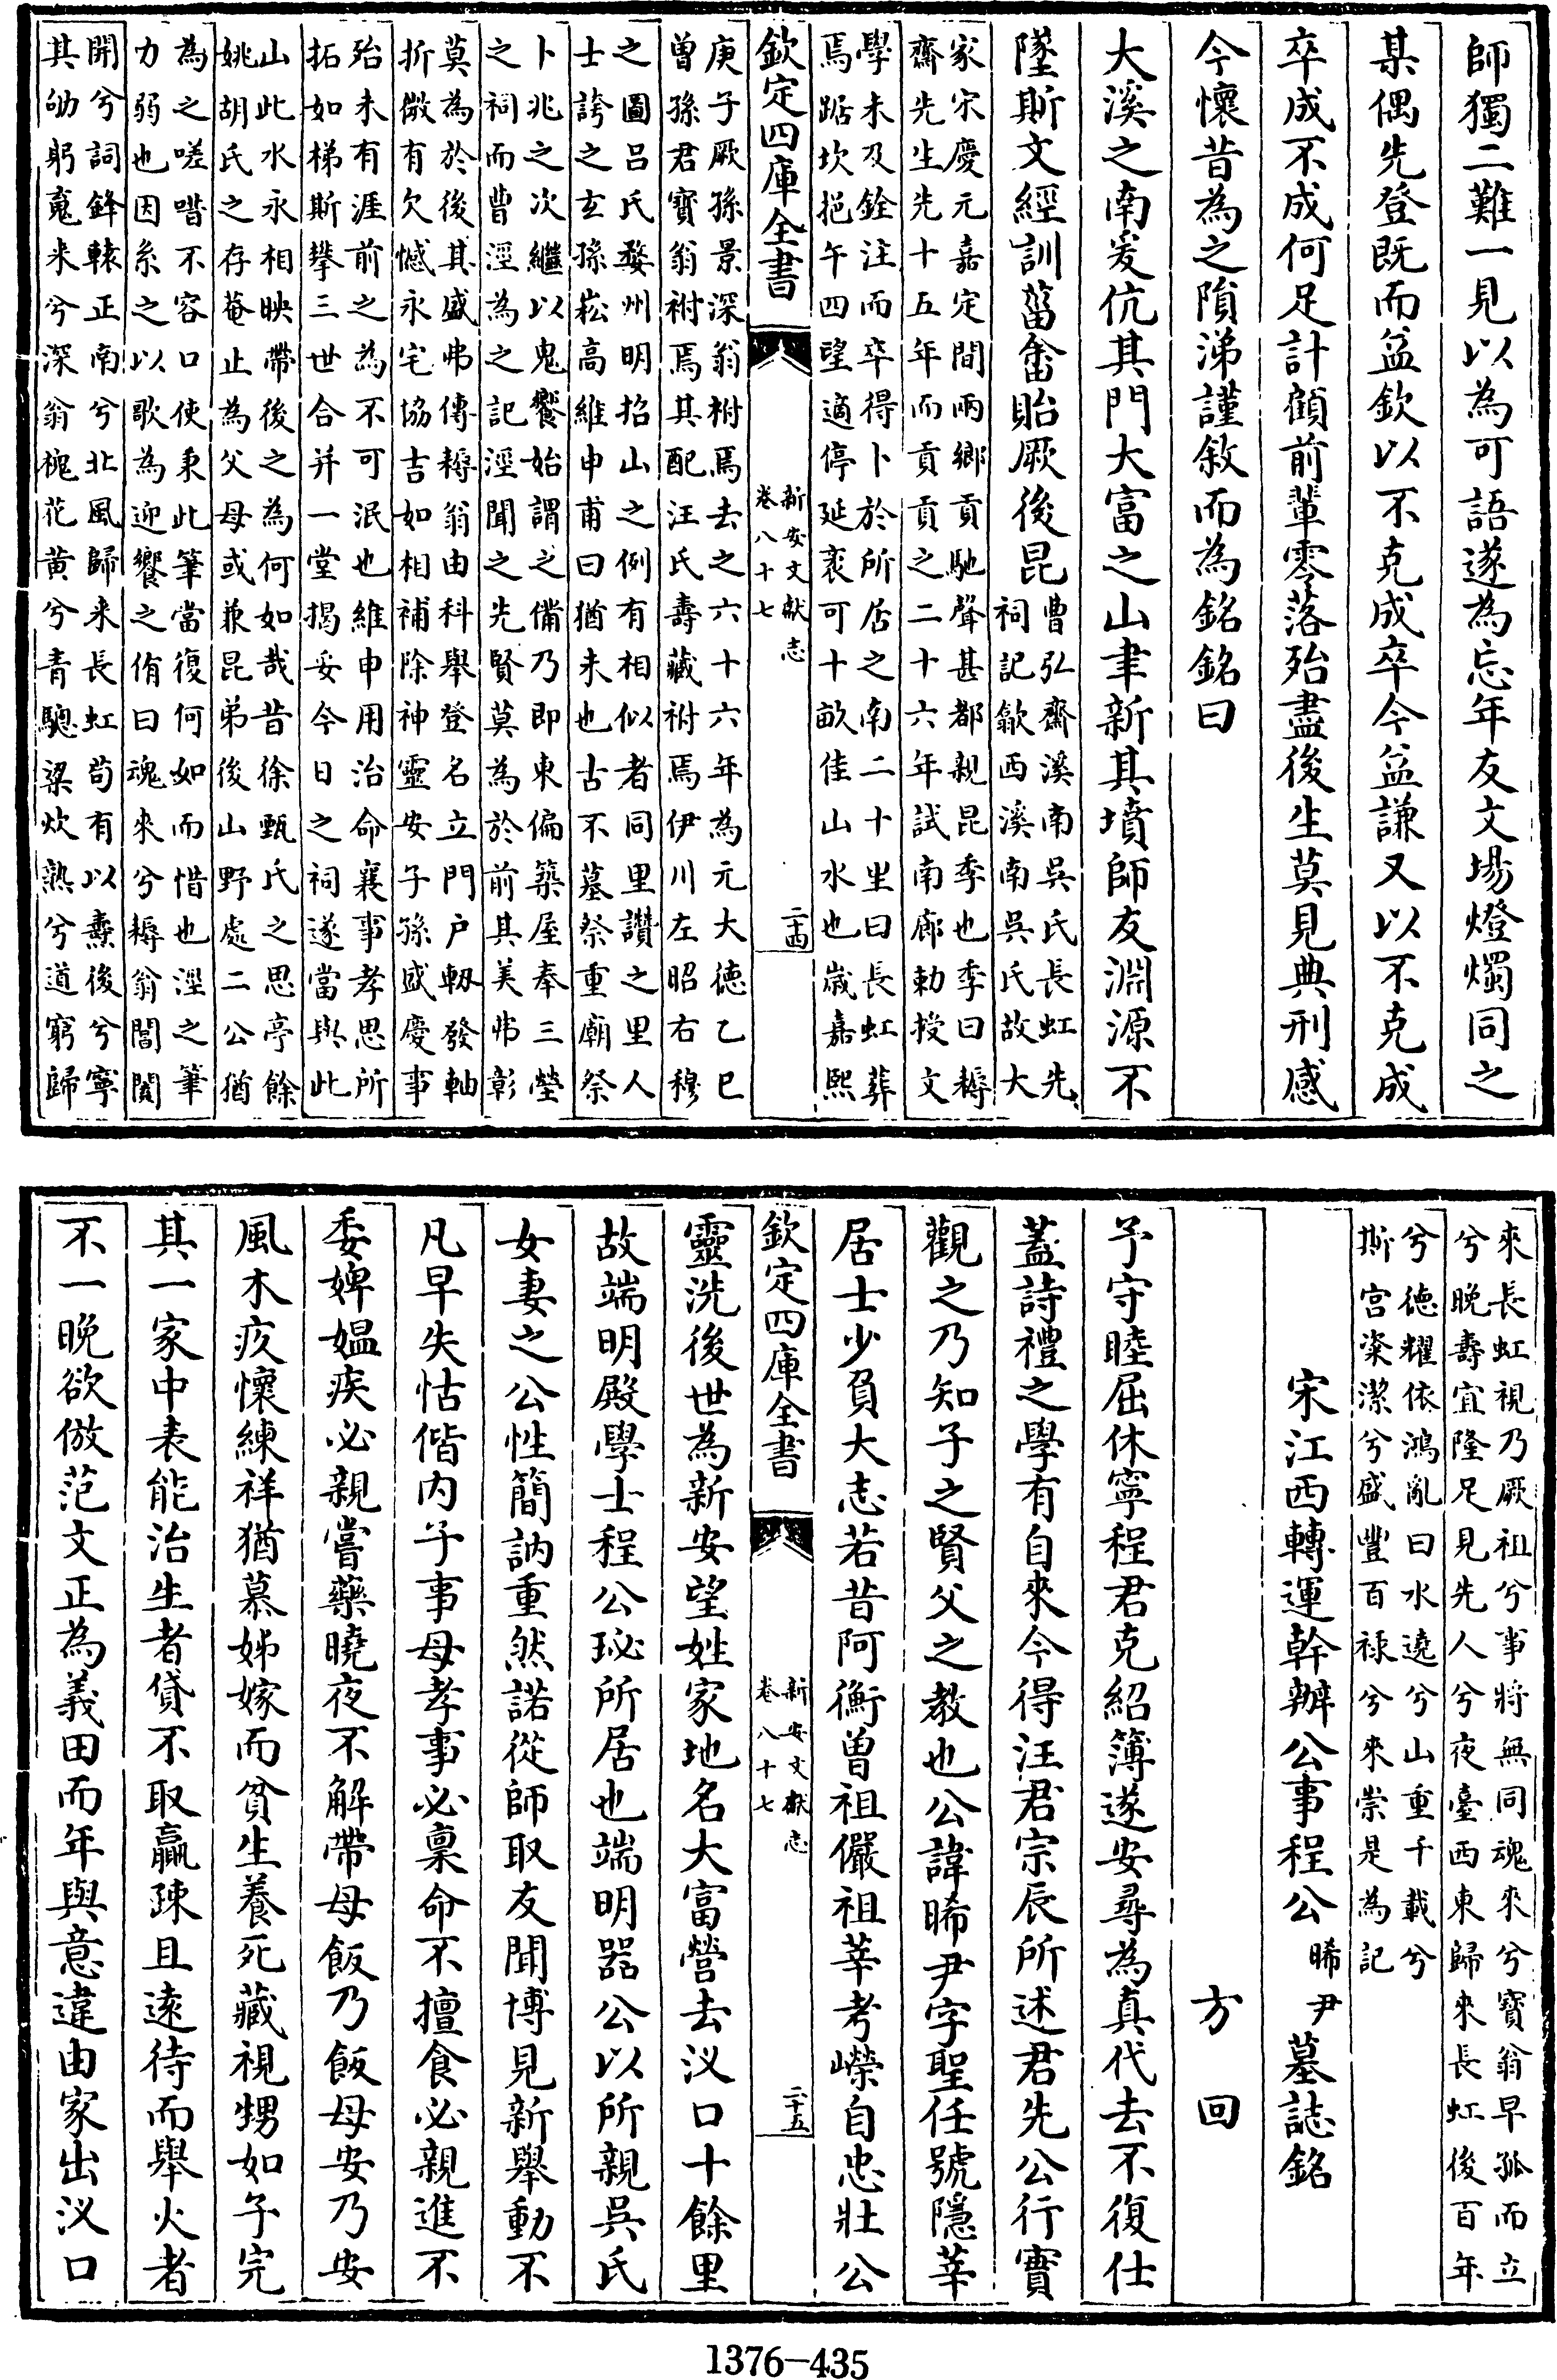 師獨二難一見以為可語遂為忘年友文場燈燭同之
某偶先登既而益欽以不克成卒今益謙又以不克成
卒成不成何足計顧前輩零落殆盡後生莫見典刑感
今懷昔為之隕涕謹敘而為銘銘曰
大溪之南爰伉其門大富之山聿新其墳師友淵源不
墜斯文經訓菑畬貽厥後昆
曹弘齋溪南吳氏長虹先
祠記歙西溪南吳氏故大
家宋慶元嘉定間兩鄉貢馳聲甚都親昆季也季曰耨
齋先生先十五年而貢貢之二十六年試南廊勅授文
學未及銓注而卒得卜於所居之南二十里曰長虹葬
焉踞坎挹午四望適停延袤可十畝佳山水也嵗嘉熙
欽定四庫全書
新安文獻志
卷八十七
二十四
庚子厥孫景深翁祔焉去之六十六年為元大德乙巳
曾孫君寶翁祔焉其配汪氏壽藏祔焉伊川左昭右穆
之圖呂氏婺州明招山之例有相似者同里讚之里人
士誇之玄孫崧高維申甫曰猶未也古不墓祭重廟祭
卜兆之次繼以鬼饗始謂之備乃即東偏築屋奉三塋
之祠而曹涇為之記涇聞之先賢莫為於前其美弗彰
莫為於後其盛弗傳耨翁由科舉登名立門户軔發軸
折僘有欠憾永宅協吉如相補除神靈安子孫盛慶事
殆未有涯前之為不可泯也維申用治命襄事孝思所
拓如梯斯攀三世合并一堂揭妥今日之祠遂當與此
山此水永相映帶後之為何如哉昔徐甄氏之思亭餘
姚胡氏之存菴止為父母或兼昆弟後山野處二公猶
為之嗟喈不容口使秉此筆當復何如而惜也涇之筆
力弱也因系之以歌為迎饗之侑曰魂來兮耨翁閶闔
開兮詞鋒轅正南兮北風歸來長虹苟有以燾後兮寧
其劬躬䰟來兮深翁槐花黄兮青驄梁炊熟兮道窮歸
來長虹視乃厥祖兮事將無同魂來兮寶翁早孤而立
兮晚壽宜隆足見先人兮夜臺西東歸來長虹後百年
兮德耀依鴻亂曰水遶兮山重千載兮
斯宮粢潔兮盛豐百禄兮來崇是為記
宋江西轉運幹辦公事程公晞尹墓誌銘
方回
予守睦屈休寧程君克紹簿遂安尋為真代去不復仕
蓋詩禮之學有自來今得汪君宗辰所述君先公行實
觀之乃知子之賢父之教也公諱晞尹字聖任號隱莘
居士少負大志若昔阿衡曾祖儼祖莘考嶸自忠壯公
欽定四庫全書
新安文獻志
卷八十七
二十五
靈洗後世為新安望姓家地名大富營去汊口十餘里
故端明殿學士程公珌所居也端明器公以所親吳氏
女妻之公性簡訥重然諾從師取友聞博見新舉動不
凡早失怙偕内子事母孝事必稟命不擅食必親進不
委婢媼疾必親嘗藥曉夜不解帶母飯乃飯母安乃安
風木疚懷練祥猶慕姊嫁而貧生養死藏視甥如子完
其一家中表能治生者貸不取贏疎且遠待而舉火者
不一晚欲倣范文正為義田而年與意違由家出汊口
1376-435